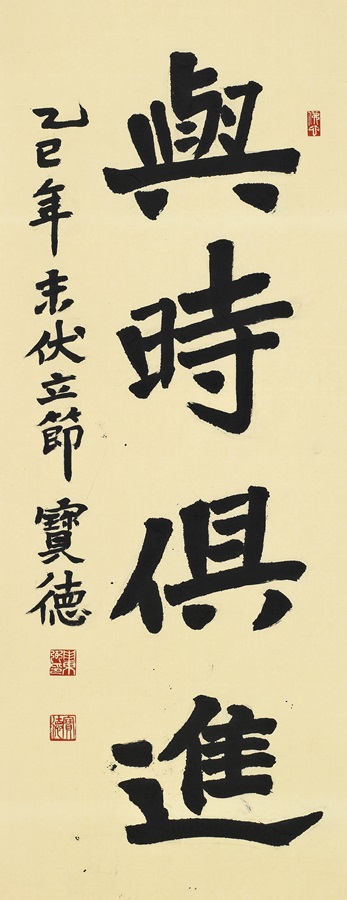 與時俱進
乙巳年末伏立節寶德